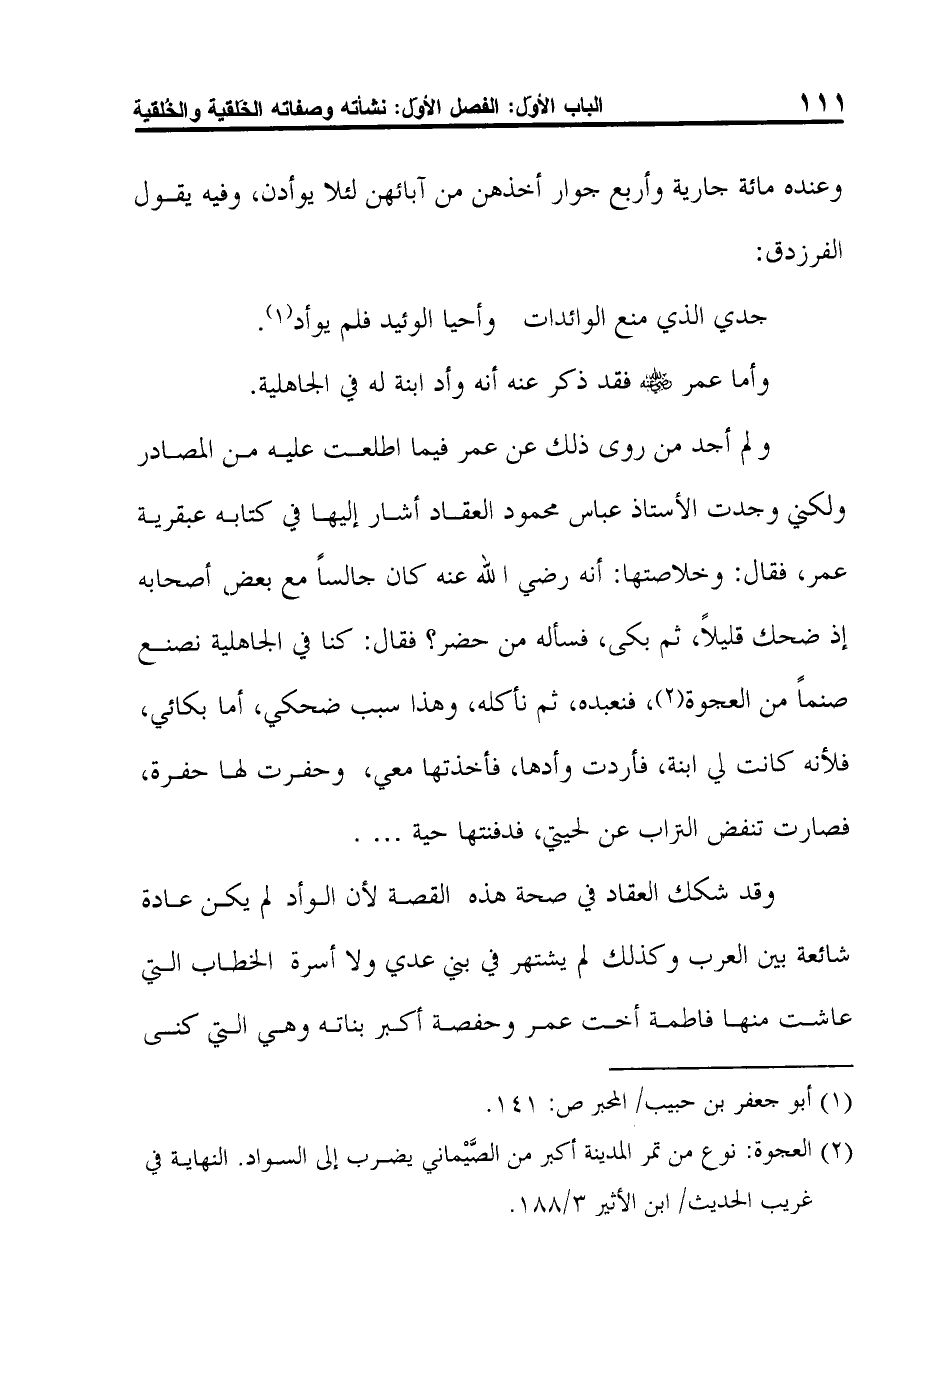 ١١١ الباب الأول: الفصل الأول: نشأته وصفاته الخَلقية والخُلقية
وعنده مائة جارية وأربع جوار أخذهن من آبائهن لئلا يوأدن، وفيه يقول
الفرزدق:
جدي الذي منع الوائدات وأحيا الوئيد فلم يوأد(١).
وأما عمر ﵁ فقد ذكر عنه أنه وأد ابنة له في الجاهلية.
ولم أجد من روى ذلك عن عمر فيما اطلعت عليه من المصادر
ولكني وجدت الأستاذ عباس محمود العقاد أشار إليها في كتابه عبقرية
عمر، فقال: وخلاصتها: أنه رضي الله عنه كان جالساً مع بعض أصحابه
إذ ضحك قليلاً، ثم بكى، فسأله من حضر؟ فقال: كنا في الجاهلية نصنع
صنماً من العجوة(٢)، فنعبده، ثم نأكله، وهذا سبب ضحكي، أما بكائي،
فلأنه كانت لي ابنة، فأردت وأدها، فأخذتها معي، وحفرت لها حفرة،
فصارت تنفض التراب عن لحيتي، فدفنتها حية ... .
وقد شكك العقاد في صحة هذه القصة لأن الوأد لم يكن عادة
شائعة بين العرب وكذلك لم يشتهر في بني عدي ولا أسرة الخطاب التي
عاشت منها فاطمة أخت عمر وحفصة أكبر بناته وهي التي كنى
(١) أبو جعفر بن حبيب/ المحبر ص: ١٤١.
(٢) العجوة: نوع من تمر المدينة أكبر من الصَّيْماني يضرب إلى السواد. النهاية في
غريب الحديث/ ابن الأثير ١٨٨/٣.